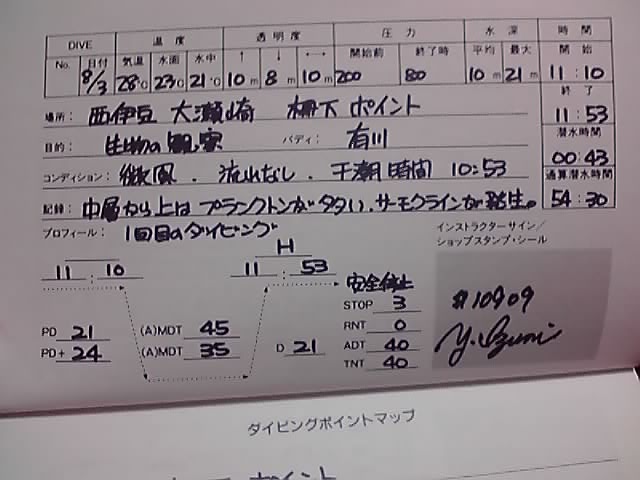 DIVE 温度 透明度 圧力 水深 時間
No. 日付 気温 水面 水中 ↑ ↓ ←→ 開始前 終了時 平均 最大 開始
8/3 28℃ 23℃ 21℃ 10m 8m 10m 200 80 10m 21m 11:10
場所: 西伊豆 大瀬崎 柵下 ポイント 終了
11:53
目的: 生物の観察 バディ: 有川 潜水時間
00:43
コンディション: 微風. 流れなし. 干潮時間 10:53 通算潜水時間
記録: 中層から上は プランクトンが 多い. サーモクラインが発生。 54:30
プロフィール: 1回目のダイビング インストラクターサイン/
ショップスタンプ・シール
H
11:10 11:53 安全停止
STOP 3
#10909
PD 21 (A)MDT 45 RNT 0
PD+ 24 (A)MDT 35 D 21 ADT 40
TNT 40
ダイビングポイントマップ
ポイント